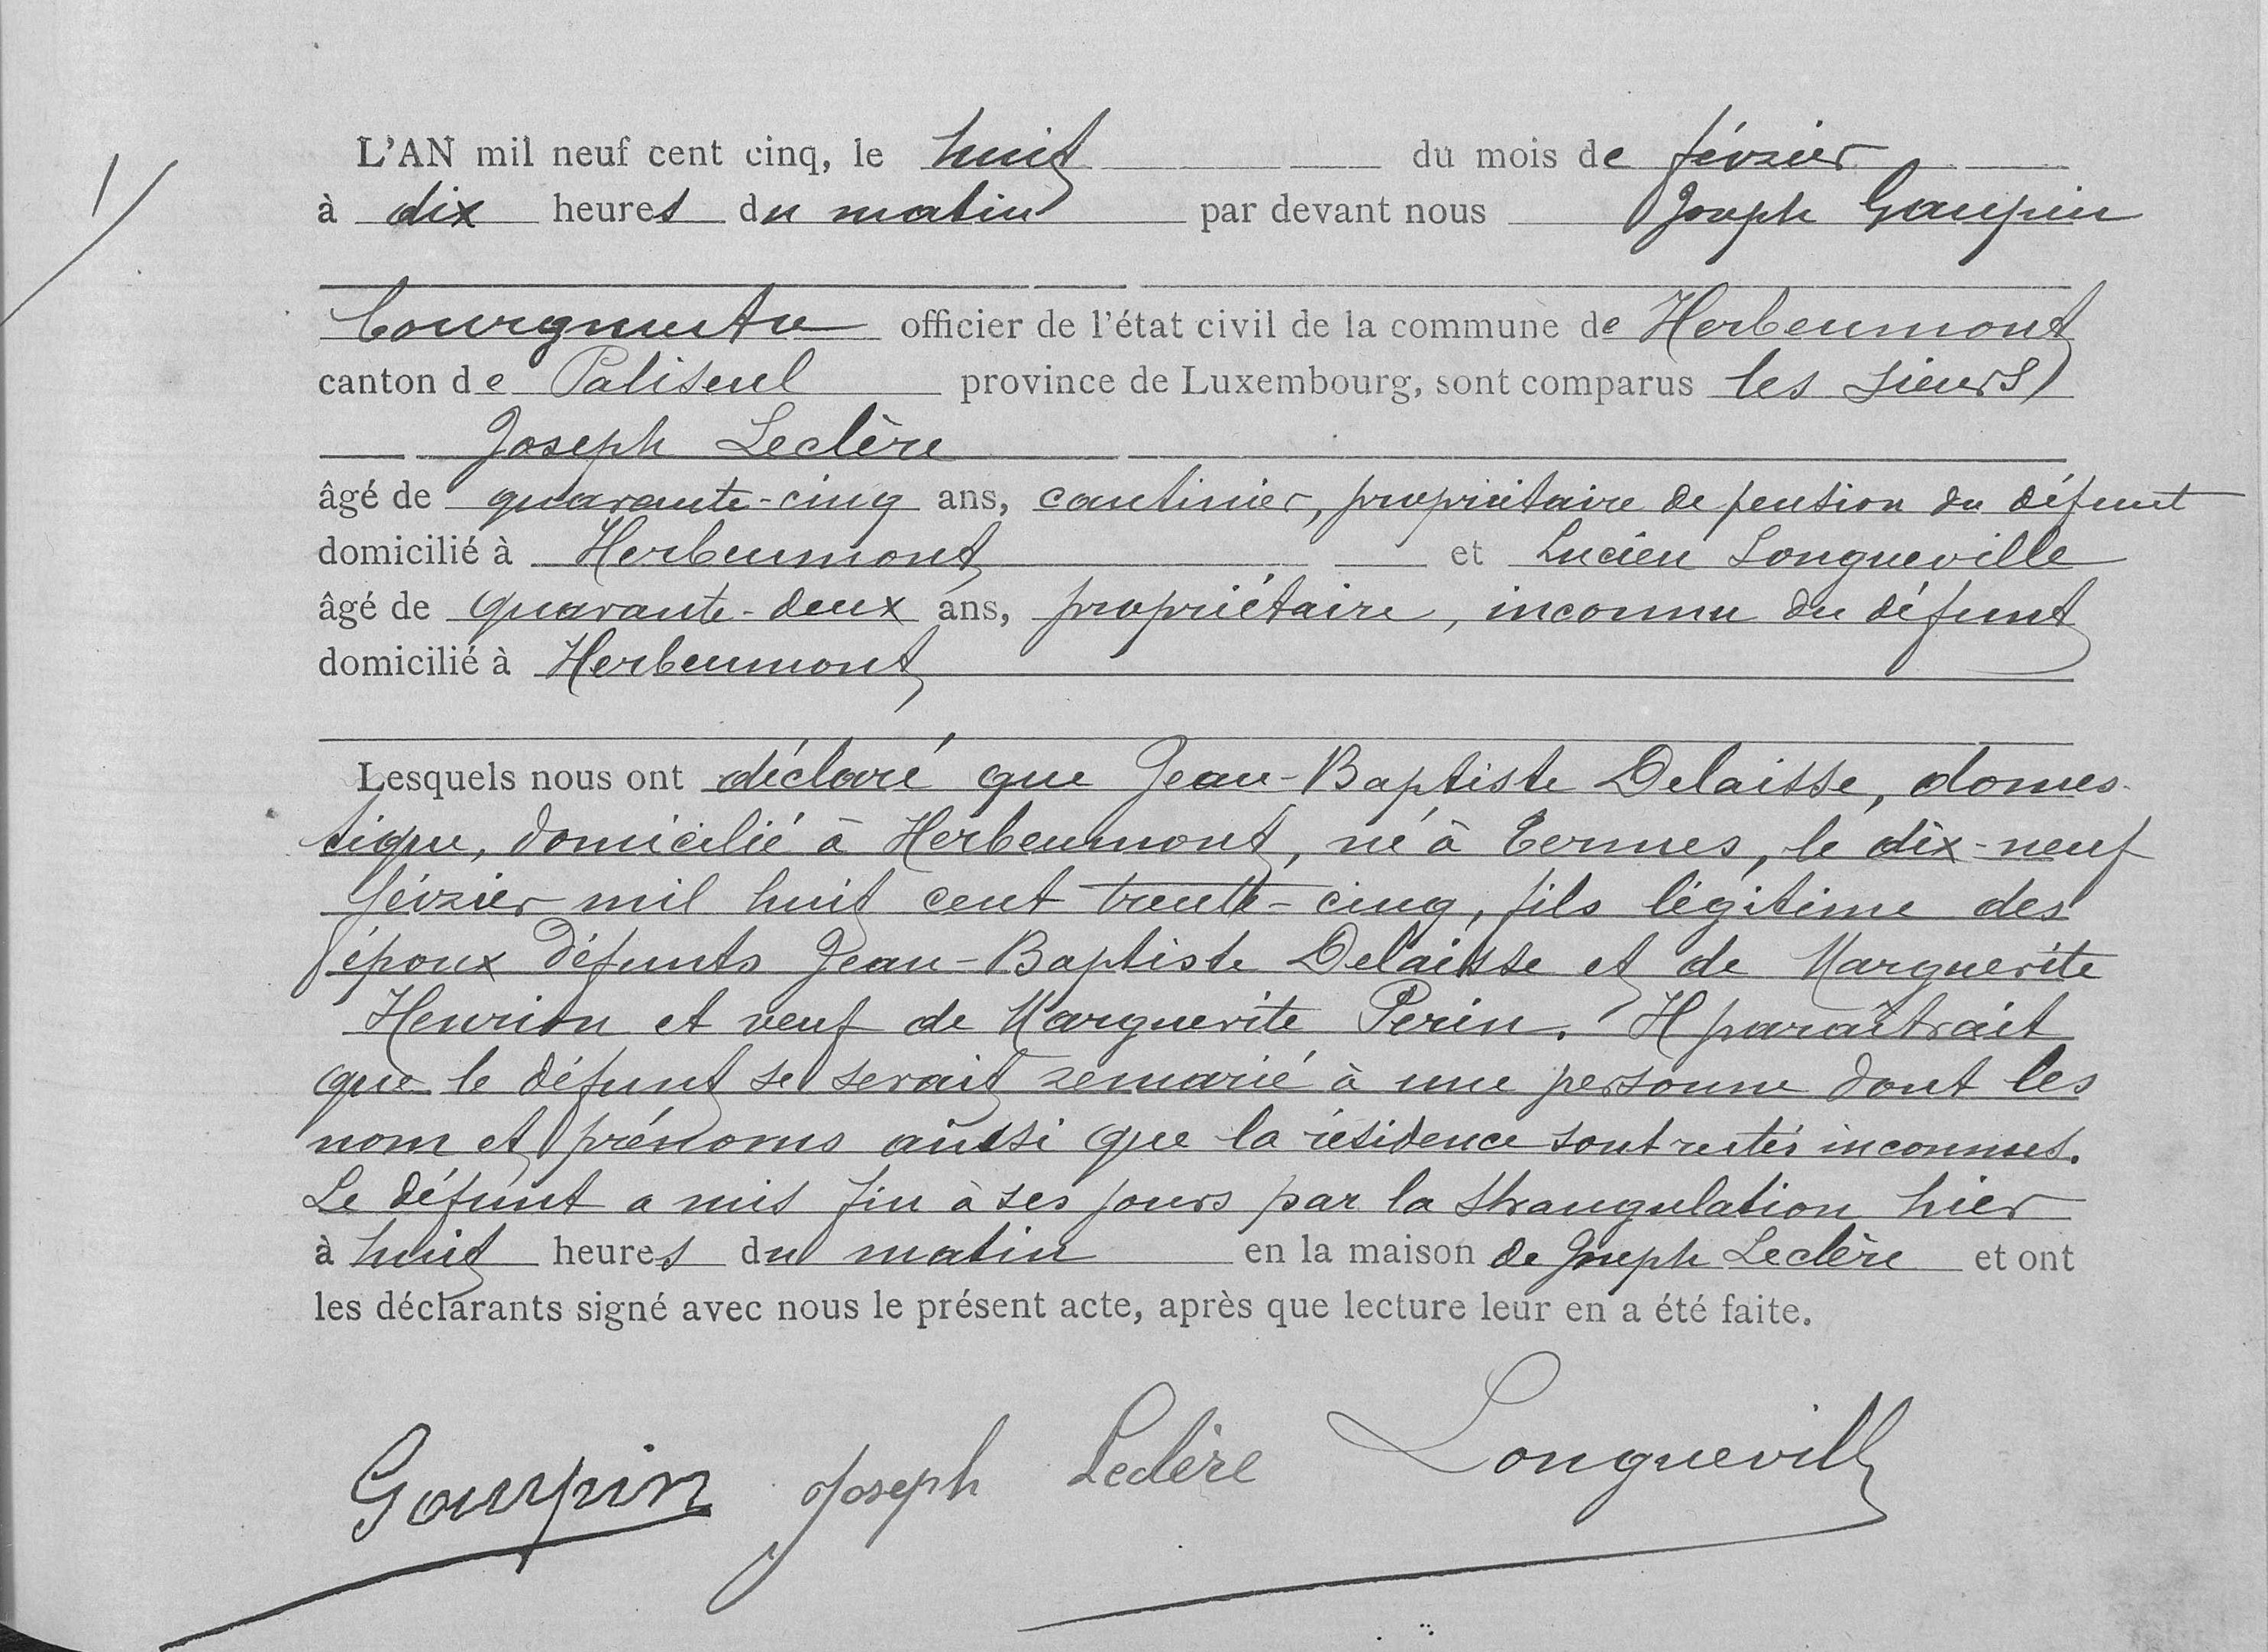 L'AN mil neuf cent cinq, le huit du mois de février
à dix heures du matin par devant nous Joseph Gaupin
bourgmestre officier de l'état civil de la commune de Herbeumont
canton de Paliseul province de Luxembourg, sont comparus les sieurs
Joseph Leclère
âgé de quarante-cinq ans, cantinier, propriétaire de pension du défunt
domicilié à Herbeumont et Lucien Longueville
âgé de quarante-deux ans, propriétaire, inconnu du défunt
domicilié à Herbeumont
Lesquels nous ont déclaré que Jean-Baptiste Delaisse, domes-
tique, domicilié à Herbeumont, né à Termes, le dix-neuf
février mil huit cent trente-cinq, fils légitime des
époux défunts Jean-Baptiste Delaisse et de Marguerite
Henrion et veuf de Marguerite Perin. Il paraîtrait
que le défunt se serait remarié à une personne dont les
nom et prénoms aussi que la résidence sont restés inconnus.
Le défunt a mis fin à ses jours par la strangulation hier
à huit heures du matin en la maison de Joseph Leclère et ont
les déclarants signé avec nous le présent acte, après que lecture leur en a été faite.
Gaupin Joseph Leclère Longueville